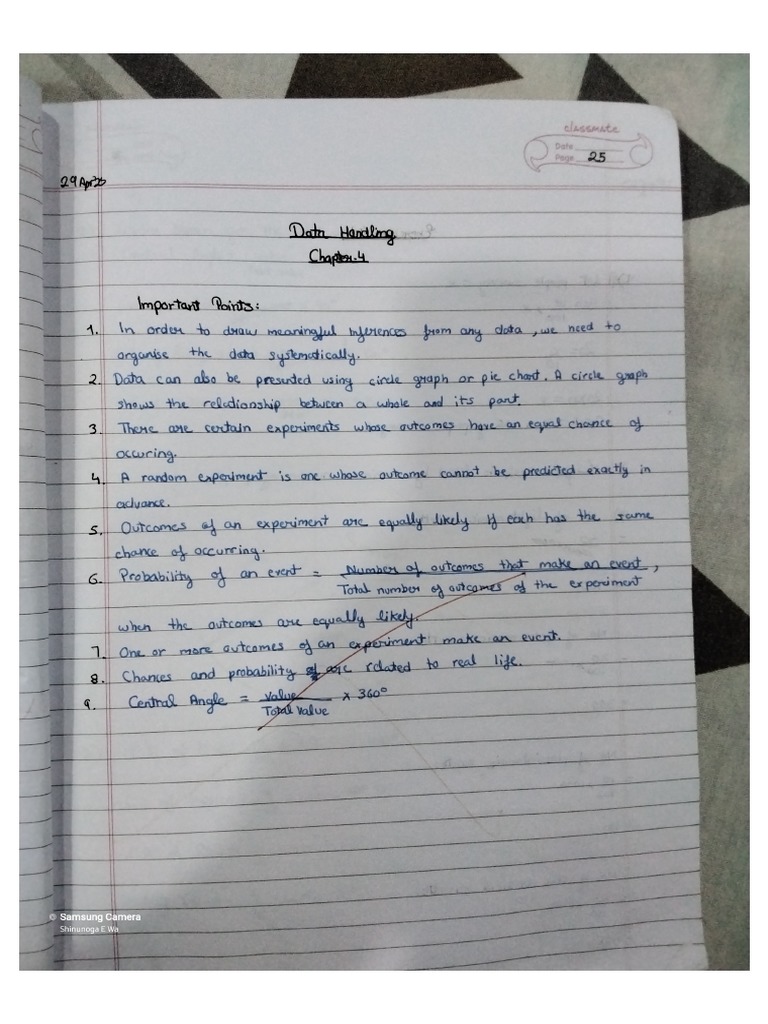 classmate
Date
Page 25
29 Apr 25
Data Handling
Chapter.4
Important Points:
1. In order to draw meaningful inferences from any data, we need to
organise the data systematically.
2. Data can also be presented using circle graph or pie chart. A circle graph
shows the relationship between a whole and its part.
3. There are certain experiments whose outcomes have an equal chance of
occuring.
4. A random experiment is one whose outcome cannot be predicted exactly in
advance.
5. Outcomes of an experiment are equally likely if each has the same
chance of occurring.
6. Probability of an event = Number of outcomes that make an event,
Total number of outcomes of the experiment
when the outcomes are equally likely.
7. One or more outcomes of an experiment make an event.
8. Chances and probability are related to real life.
9. Central Angle = Value x 360°
Total Value
Samsung Camera
Shinunoga E Wa